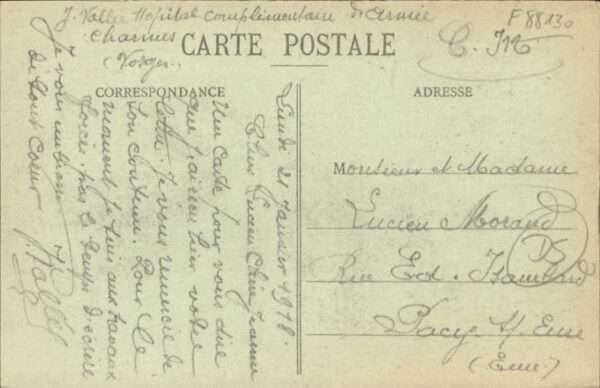 J. Vallée Hopital complémentaire d'armée
Charmes
(Vosges)
F 88130
C. M
CARTE POSTALE
CORRESPONDANCE
ADRESSE
Lundi 21 Janvier 1918.
Chers Lucien Claire Jeanne
Un carte pour vous dire
que j'ai reçu hier votre
lettre. Je vous remercie de
son contenu. Pour le
moment je suis aux travaux
forcés, pas le temps d'écrire
Je vous embrasse
de tout cœur
J. Vallée
Monsieur et Madame
Lucien Morand
Rue Ed. Isambard
Pacy s/ Eure
(Eure)